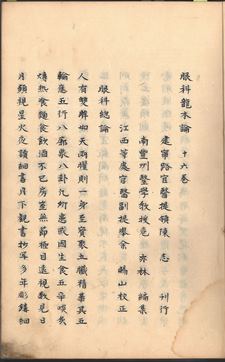 眼科龍木論 十六卷
建寧路官醫提領陳 志 刊行
南豐州醫學教授危 亦林 編集
江西等處官醫副提舉余 賜山 校正
眼科總論
人有雙眸如天兩曜則一身至寶聚五臟精華其五
輪應五行八廓象八卦凡所患或因生食五辛啖炙
燒熱飡麵食飲酒不已房室無節極目遠視數見日
月頻視星火夜讀細書月下觀書抄写多年雕鏤細